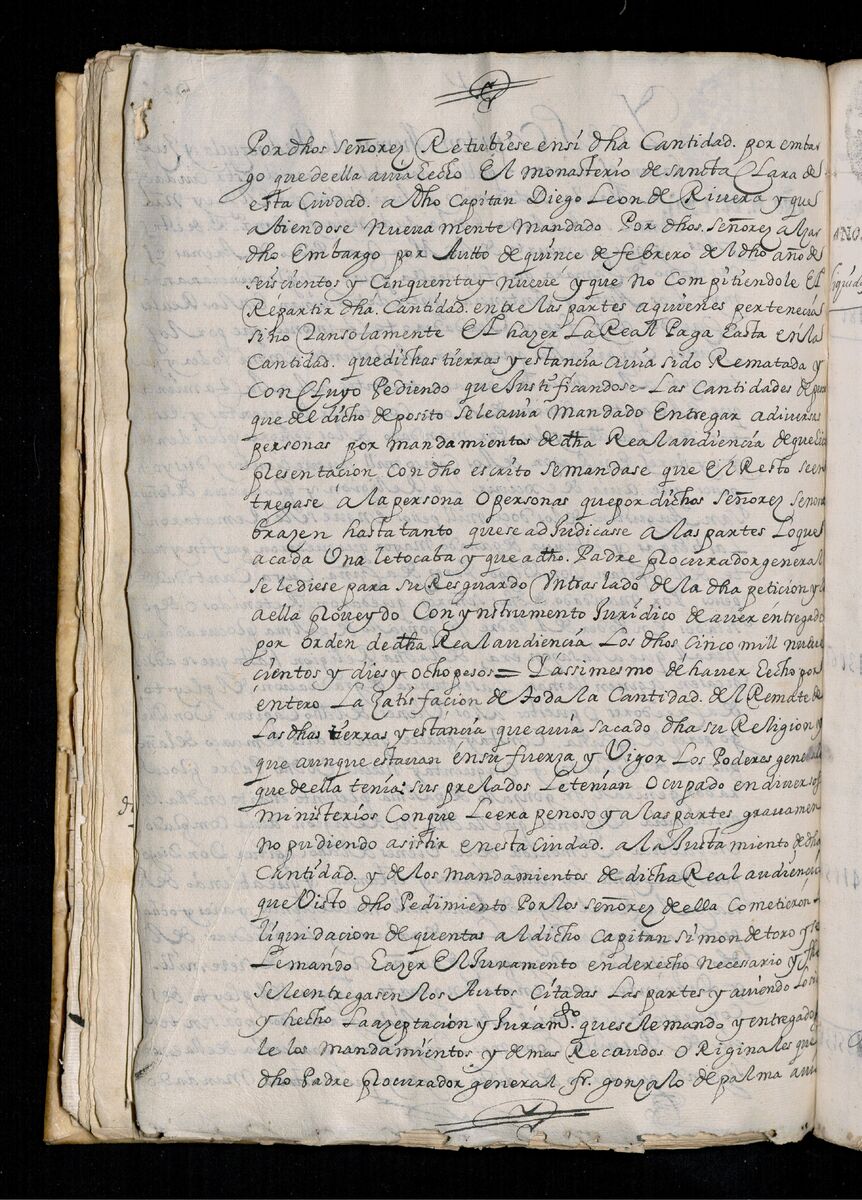 Por dhos señorez Retubiese ensi dha Cantidad. por embar
go que de ella auia Eecho El monasterio de sancta Clara de
esta Ciudad. a dho Capitan Diego Leon de Riuera y que
abiendose Nueuamente Mandado Por dhos. Señorez alzar
dho Embargo por Autto de quince de febrero del dho año de
seiscientos y Cinquenta y nueue y que No Compitiendole El
Repartir dha. Cantidad. entre las partes a quienes pertenecia
sino tansolamente El hazer La Reall Paga Easta en la
Cantidad. que dichas tierras y estancia auia sido Rematada y
Concluyo Pediendo que Justificandose Las Cantidades de
que del dicho deposito se le auia Mandado Entregar a diuersas
personas por mandamientos de dha Real audiencia de que
plesentacion Con dho escrito se mandase que El Resto se en
tregase a la persona O personas que por dichos Señorez se nom
brazen hasta tanto que se adJudicasse a las partes Lo que
a cada Una le tocaba y que a dho. Padre plocurador general
se le diese para su Resguardo Yn traslado de la dha peticion y
a ella ploueydo Con ynstrumento Juridico de auer entregado
por orden de dha Real audiencia Los dhos Cinco mill nouE
cientos y dies y ocho pesos = Y assimesmo de hauer Eecho por
entero La Zatisfacion de toda la Cantidad. del Remate de
Las dhas tierras y estancia que auia sacado dha su Religion y
que aunque estauan en su fuerza y Vigor Los Poderes generales
que de ella tenia: sus prelados Le tenian Ocupado en diuersos
ministerios Con que Le era penoso y a las partes grauamen
No pudiendo asistir en esta Ciudad. a la Justamiento de dha
Cantidad. y de los mandamientos de dicha Real audiencia
que Visto dho Pedimiento Por los Señorez de ella Cometieron
liquidacion de quentas al dicho Capitan Simon de toro y se
Le mando Eazer El Juramento en derecho Necessario y
se le entregasen los Autos Citadas Las partes y auiendo
y hecho La azeptacion y Juramto. que se le mando y entregado
le los mandamientos y demas Recaudos Originales que
dho Padre plocurador general fr. gonzalo de palma auia
ANO.